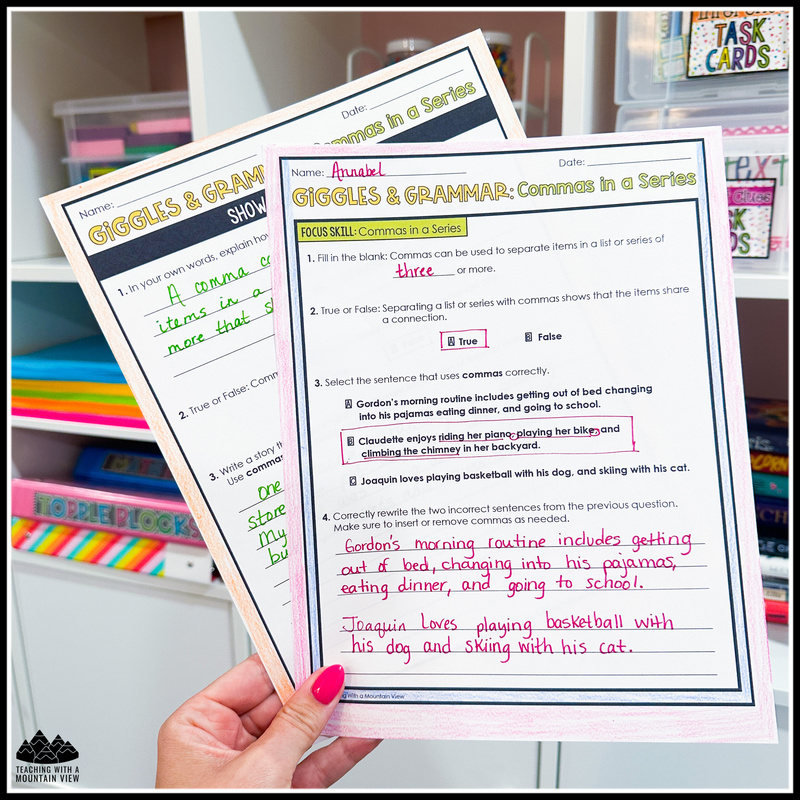 TASK
CARDS
Date:
Name:
GIGGLES & GRAMM
Commas in a Series
SHOW
1. In your own words, explain how
A comma ca
items in a
more that s
2. True or False: Comm
3. Write a story th
Use commas
one
store
My
bu
TOPPLE BLOCKS
Name: Annabel
Date:
GIGGLES & GRAMMAR: Commas in a Series
FOCUS SKILL: Commas in a Series
1. Fill in the blank: Commas can be used to separate items in a list or series of
three or more.
2. True or False: Separating a list or series with commas shows that the items share
a connection.
A True
B False
3. Select the sentence that uses commas correctly.
A Gordon's morning routine includes getting out of bed changing
into his pajamas eating dinner, and going to school.
B Claudette enjoys riding her piano, playing her bike, and
climbing the chimney in her backyard.
C Joaquin loves playing basketball with his dog, and skiing with his cat.
4. Correctly rewrite the two incorrect sentences from the previous question.
Make sure to insert or remove commas as needed.
Gordon's morning routine includes getting
out of bed, changing into his pajamas,
eating dinner, and going to school.
Joaquin Loves playing basketball with
his dog and skiing with his cat.
ng with a Mountain View
TEACHING WITH A
MOUNTAIN VIEW